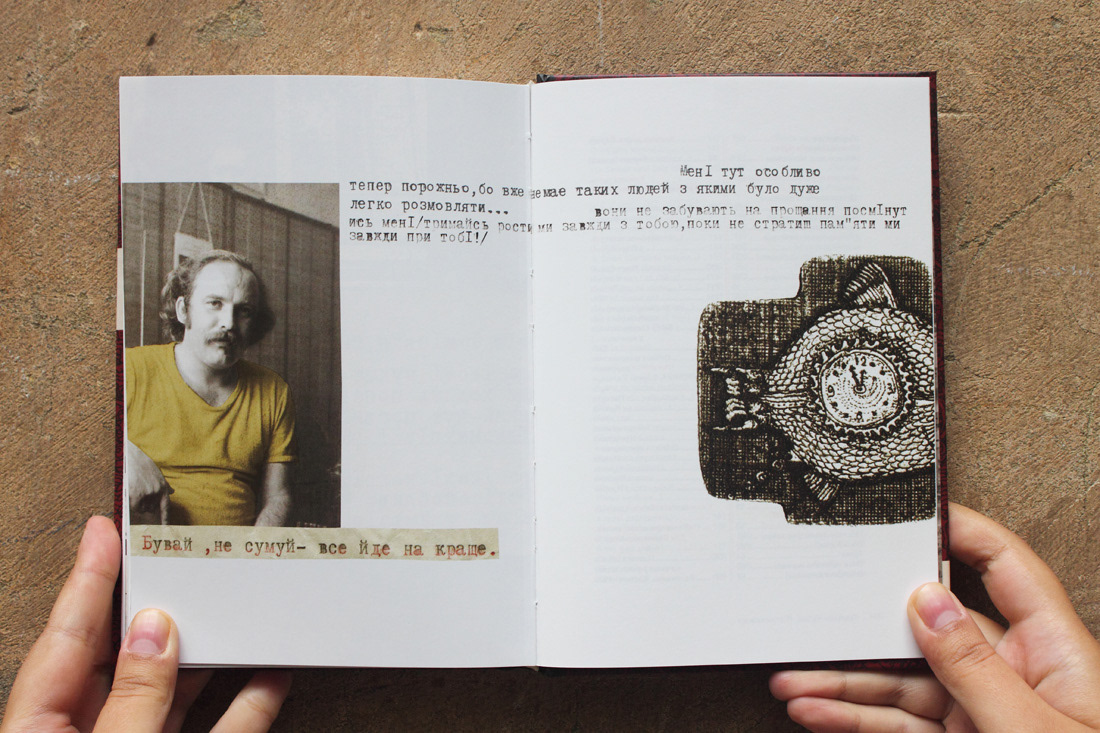 МенІ тут особливо
тепер порожньо,бо вже немає таких людей з якими було дуже
легко розмовляти... вони не забувають на прощання посмІнут
ись менІ/тримайсь рости ми завжди з тобою,поки не стратиш пам"яти ми
завжди при тобІ!/
Бувай ,не сумуй- все йде на краще.
12